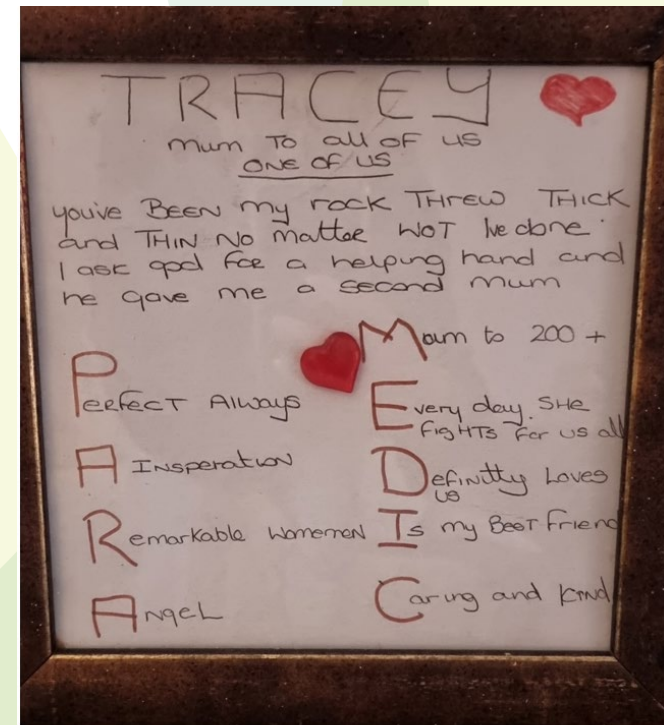 TRACEY
mum To all of us
ONE OF US
you've BEEN my rock THREW THICK
and THIN NO matter WOT Ive done
I ask god For a helping hand and
he gave me a second mum
PERFECT Always
A INSPERATION
Remarkable Womemen
ANgEL
Moum to 200 +
Every day SHE
FigHTs For us all
Definitly Loves
us
Is my BesT friend
Caring and Kind